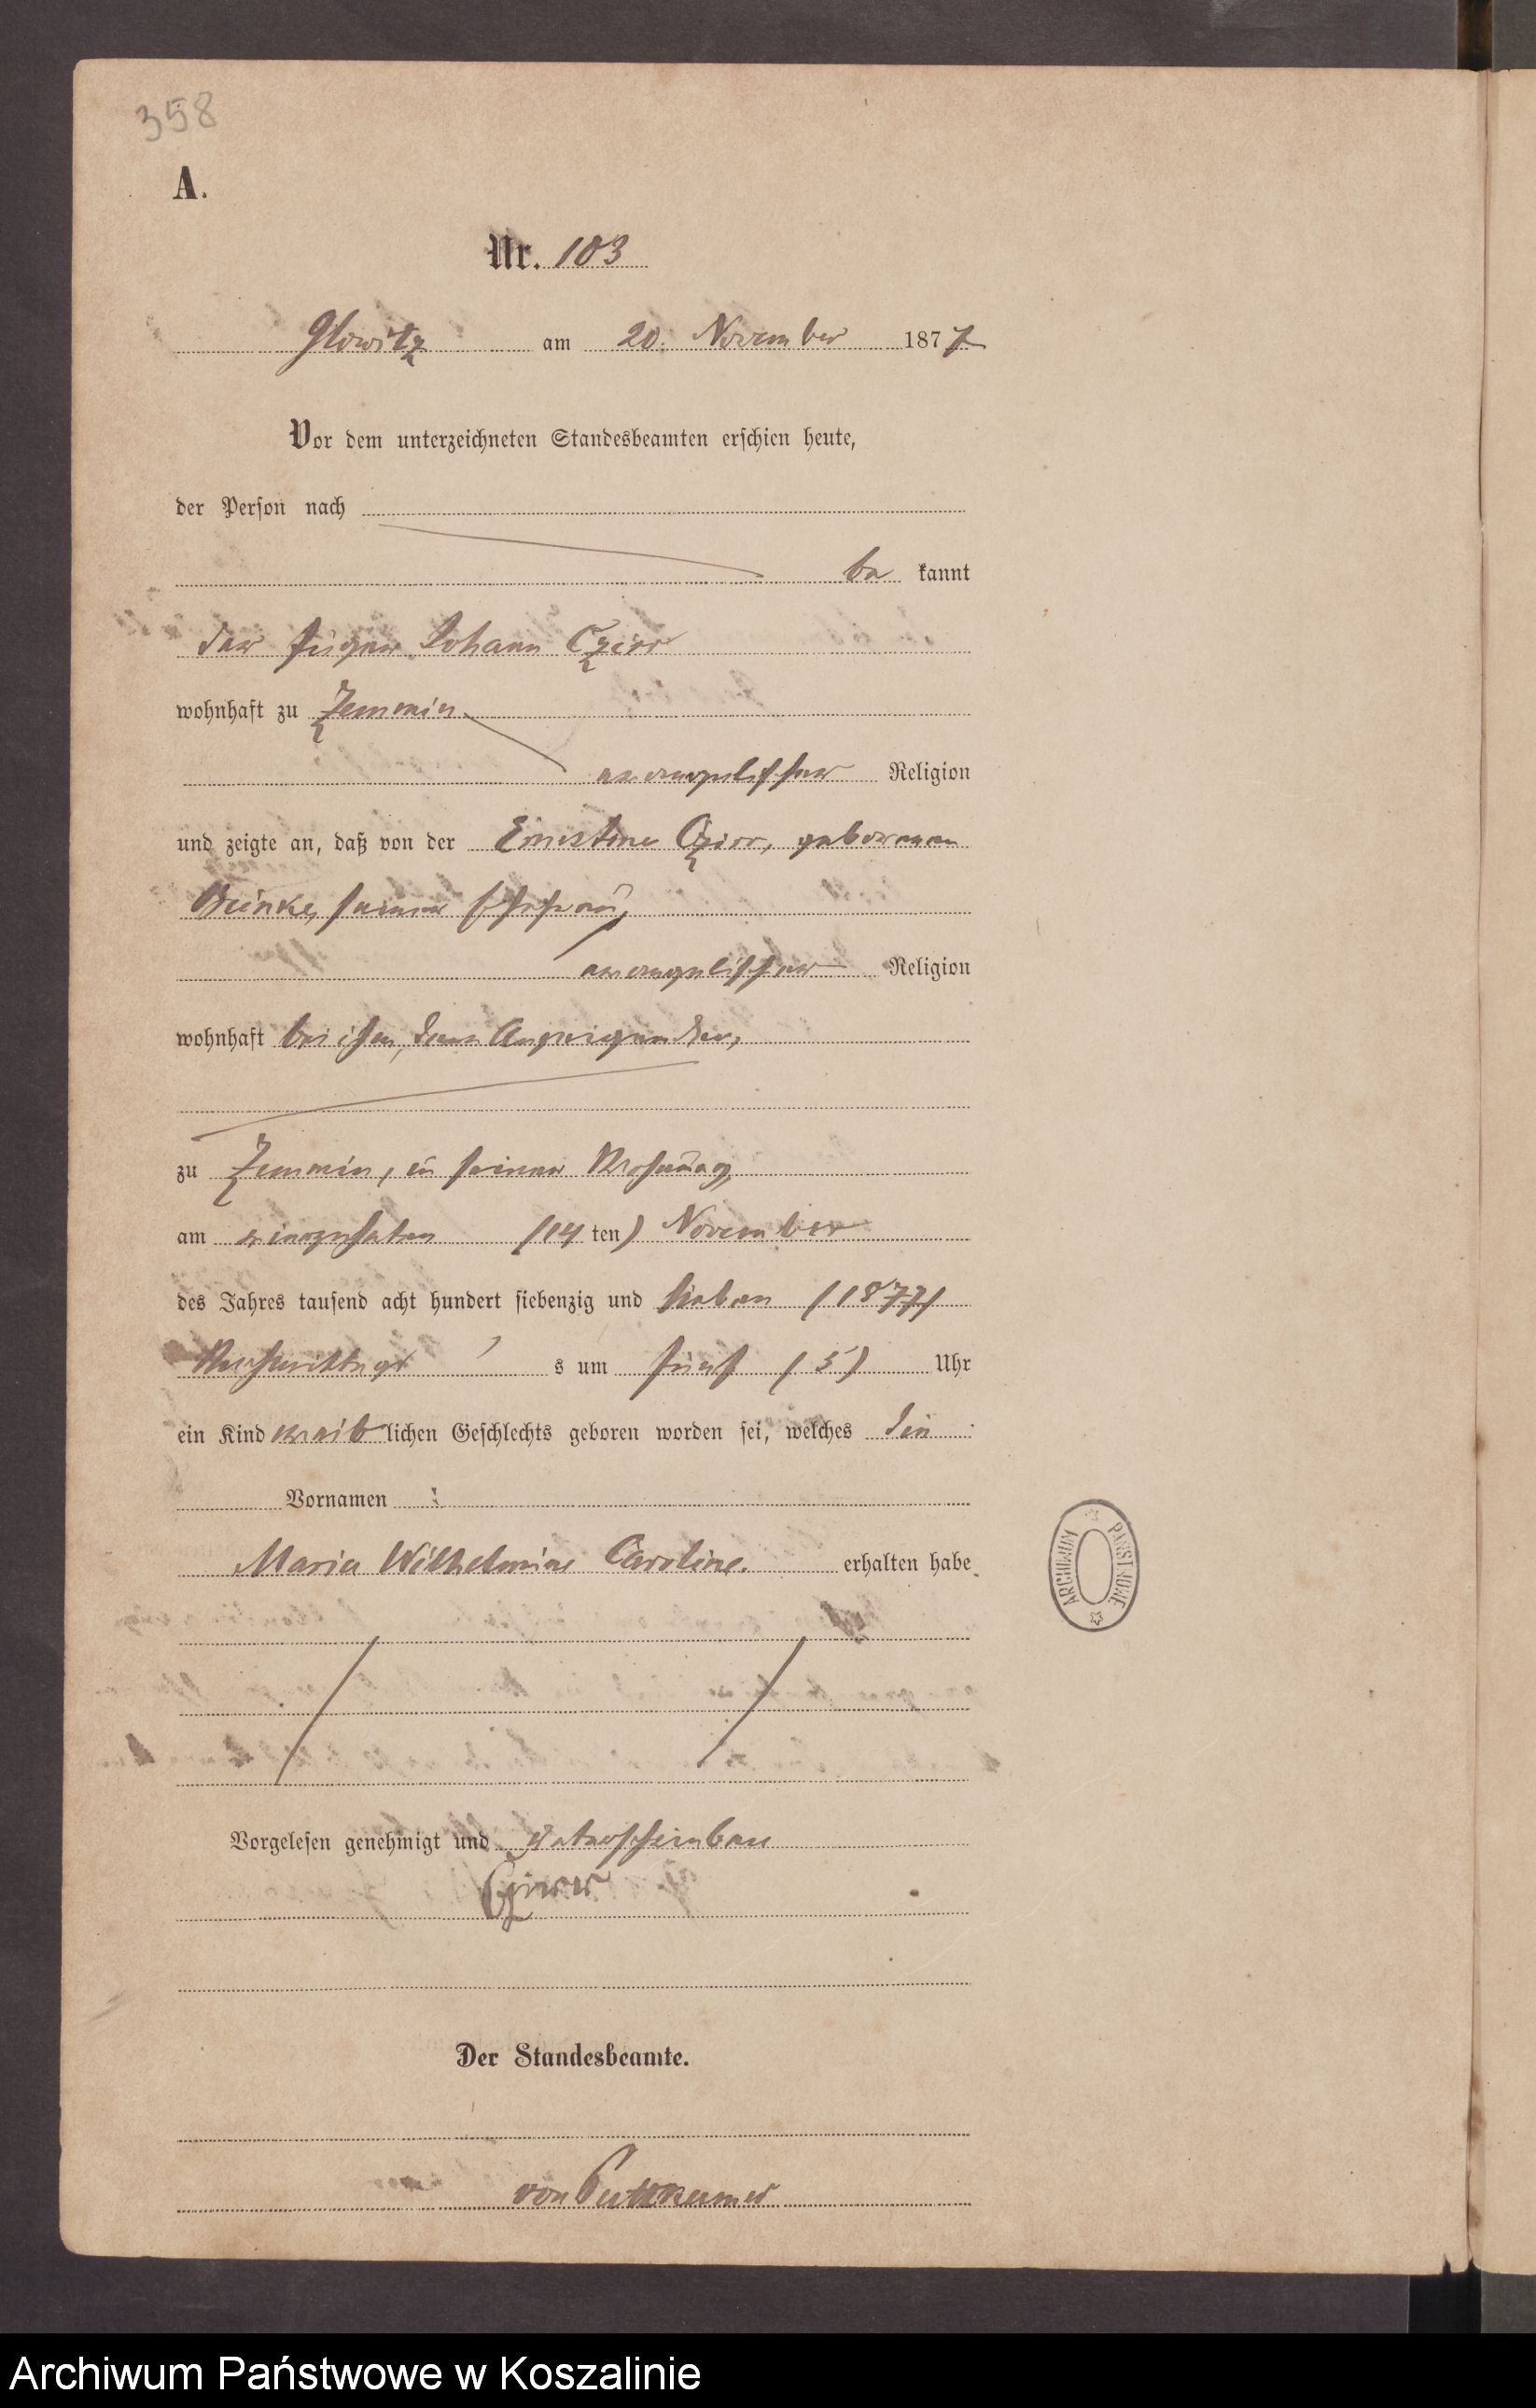 358
A.
Nr. 103
Glowitz am 20. November 1877
Vor dem unterzeichneten Standesbeamten erschien heute,
der Person nach
be kannt
der Johann Czirr
wohnhaft zu Zemmin
evangelischer Religion
und zeigte an, daß von der Ernestine Czirr, geborenen
seiner Ehefrau,
evangelischer Religion
wohnhaft bei ihm, dem Anzeigenden,
zu Zemmin, in seiner Wohnung,
am vierzehnten (14 ten) November
des Jahres tausend acht hundert siebenzig und sieben (1877)
Nachmittags s um fünf (5) Uhr
ein Kind weiblichen Geschlechts geboren worden sei, welches die
Vornamen :
Maria Wilhelmine Caroline. erhalten habe.
Vorgelesen genehmigt und unterschrieben
Czirr
Der Standesbeamte.
von Puttkamer
ARCHIWUM PAŃSTWOWE
Archiwum Państwowe w Koszalinie